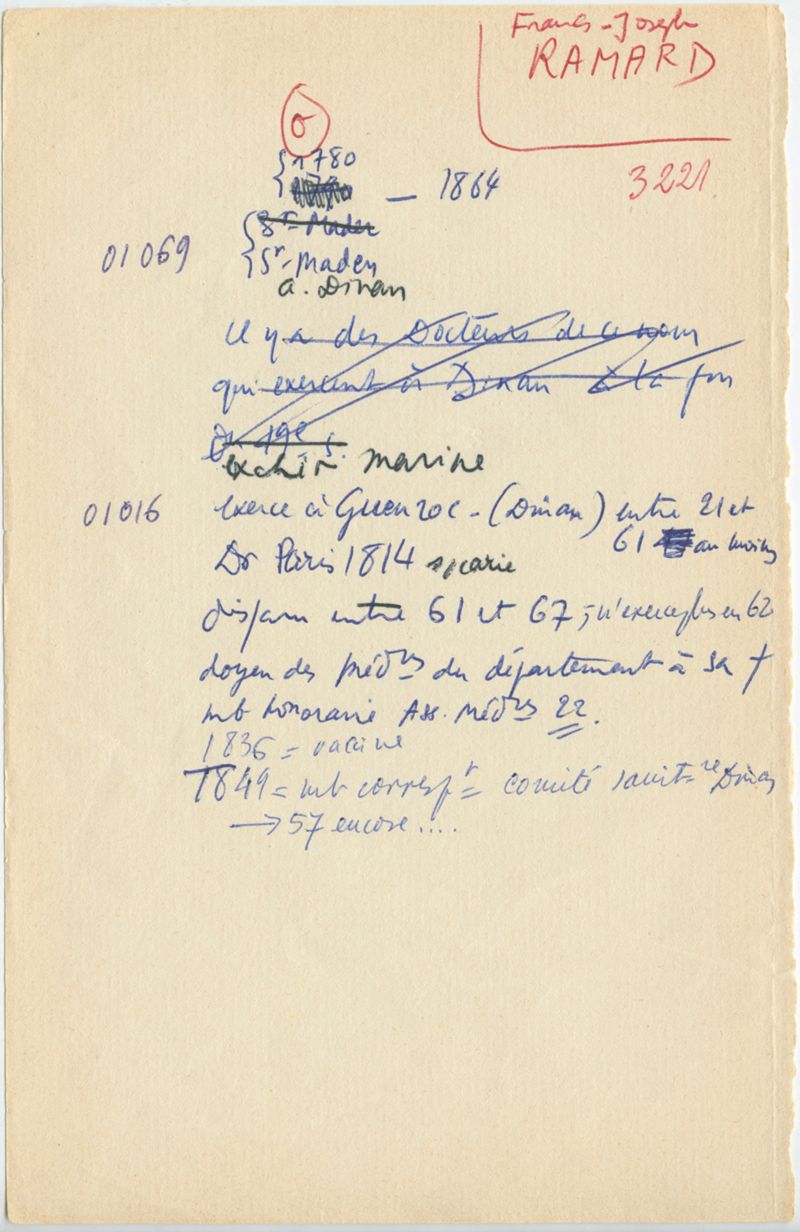 Francs-Joseph
RAMARD
σ
1780
— 1864
3221
St-Maden
01069
St-Maden
a. Dinan
il y a des Docteurs de ce nom
qui exercent à Dinan à la fin
du 19e s.
exchir marine
01016
exerce à Guenroc - (Dinan) entre 21 et
61 au moins
Dr Paris 1814
disparu entre 61 et 67; n'exerce plus en 62
doyen des médns du département à sa †
mb honoraire Ass. médns 22.
1836 = vaccine
1849 = mb correspt = comité sanitre Dinan
→ 57 encore....